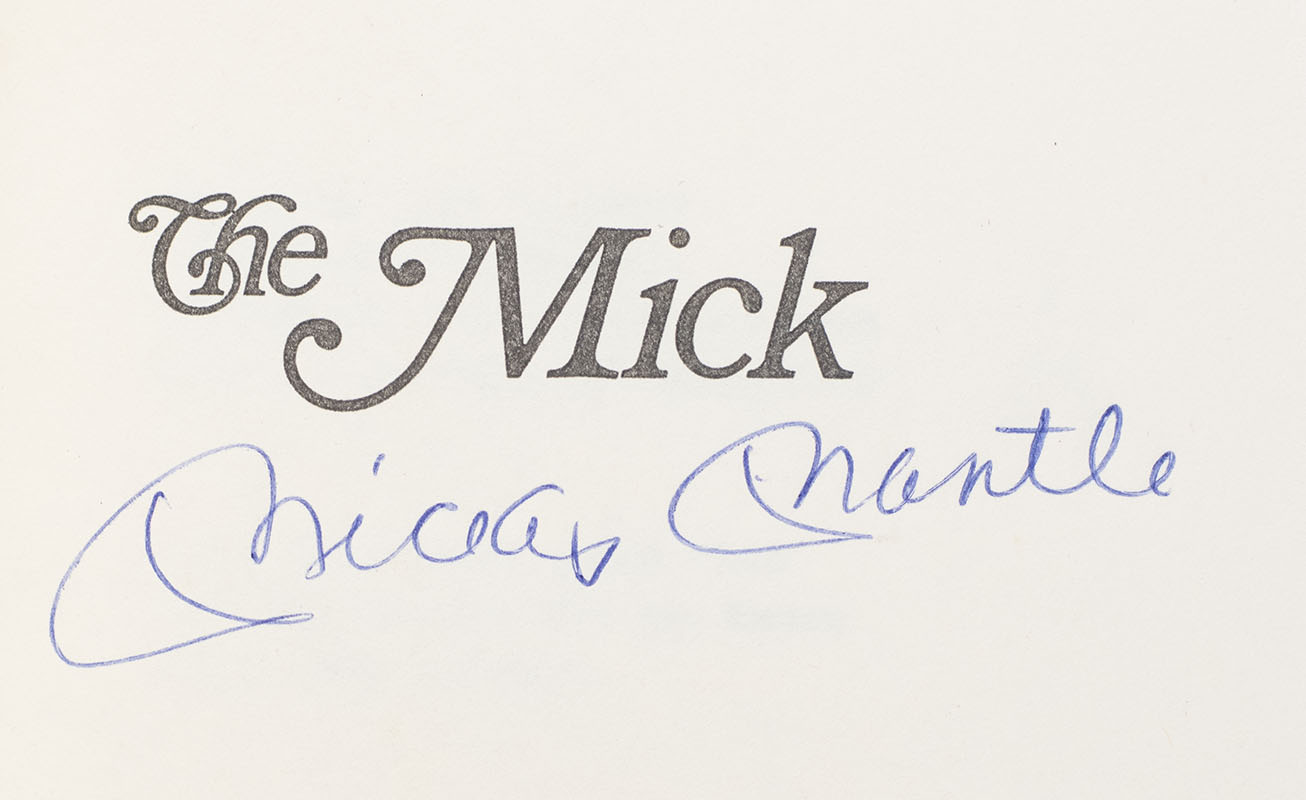 The Mick
Mickey Mantle